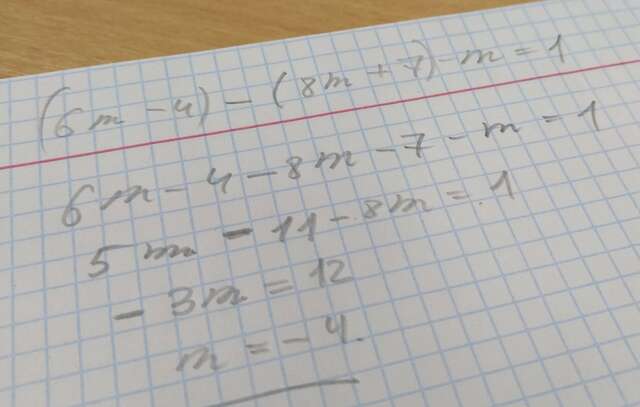 (6m - 4) - (8m + 7) - m = 1
6m - 4 - 8m - 7 - m = 1
5m - 11 - 8m = 1
- 3m = 12
m = - 4.